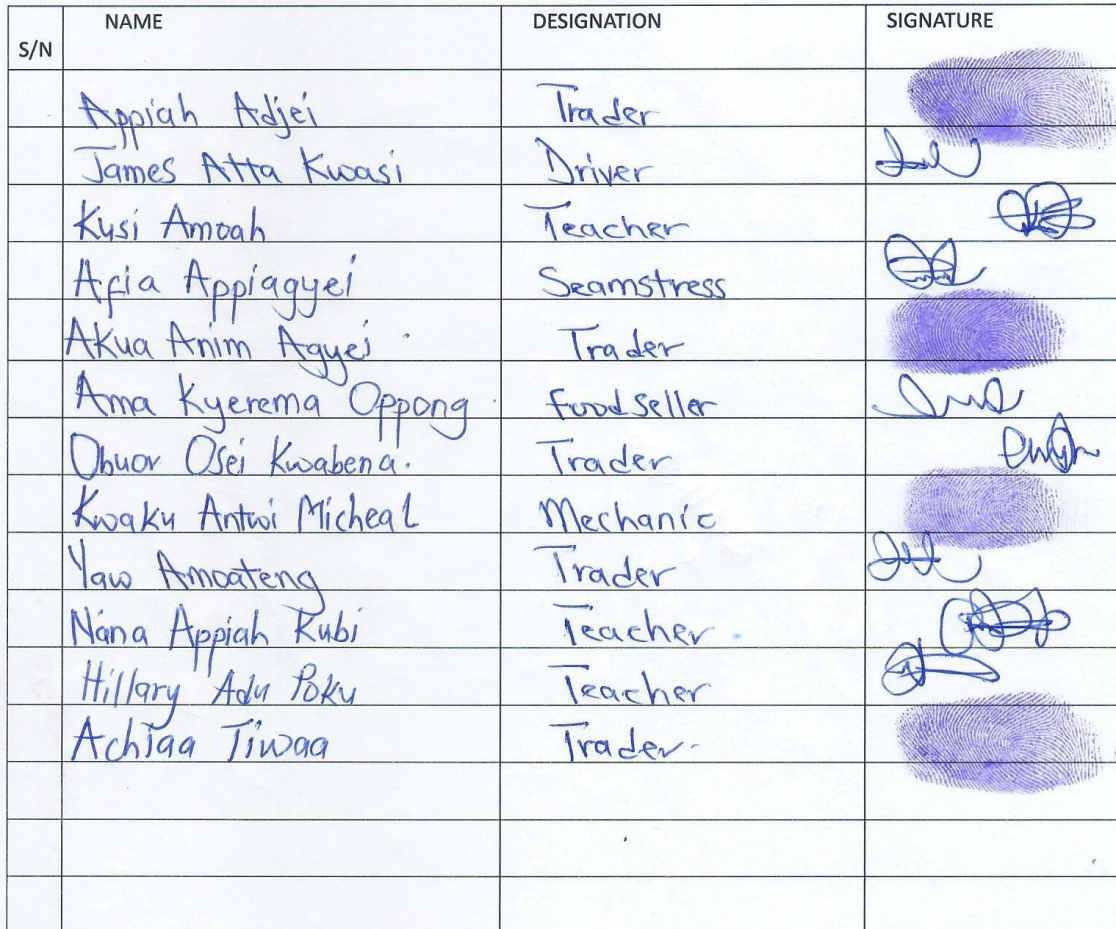 S/N NAME DESIGNATION SIGNATURE
Appiah Adjei Trader
James Atta Kwasi Driver
Kusi Amoah Teacher
Afia Appiagyei Seamstress
Akua Anim Agyei Trader
Ama Kyerema Oppong Foodseller
Obuor Osei Kwabena. Trader
Kwaku Antwi Micheal Mechanic
Yaw Amoateng Trader
Nana Appiah Kubi Teacher
Hillary Adu Poku Teacher
Achiaa Tiwaa Trader